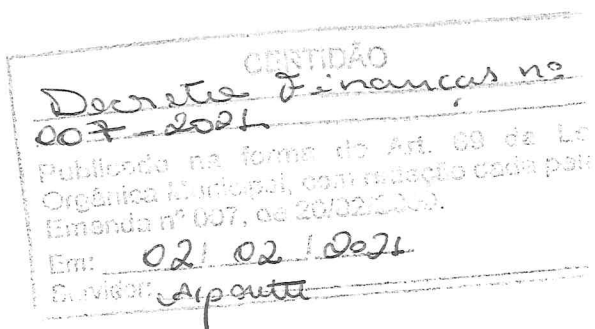 CERTIDÃO
Decreto Finanças nº
007-2021
Publicado na forma do Art. 69 da Le
Orgânica Municipal, com redação dada pela
Emenda nº 007, de 20/02/
Em: 02/ 02 / 2021
Servidor: